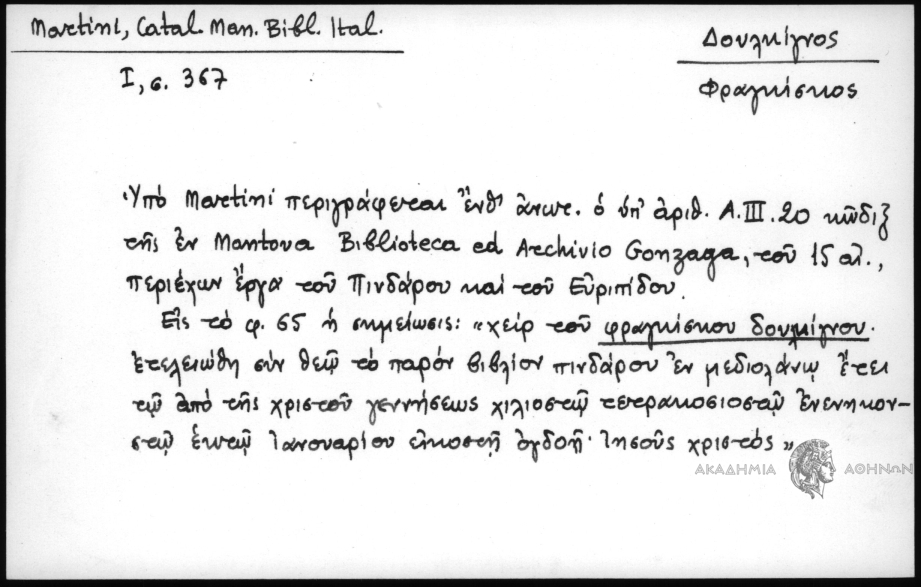 Martini, Catal. Man. Bibl. Ital.
I, σ. 367
Δουλκίγνος
Φραγκίσκος
Ὑπό Martini περιγράφεται ἔνθ' ἀνωτ. ὁ ὑπ' ἀριθ. A.III.20 κῶδιξ
τῆς ἐν Mantova Biblioteca ed Archivio Gonzaga, τοῦ 15 αἰ.,
περιέχων ἔργα τοῦ Πινδάρου καί τοῦ Εὐριπίδου.
Εἰς τό φ. 65 ἡ σημείωσις: «χείρ τοῦ φραγκίσκου δουλκίγνου.
ἐτελειώθη σύν θεῷ τό παρόν βιβλίον πινδάρου ἐν μεδιολάνῳ ἔτει
τῷ ἀπό τῆς χριστοῦ γεννήσεως χιλιοστῷ τετρακοσιοστῷ ἐνενηκον-
στῷ ἑκτῷ ἰανουαρίου εἰκοστῇ ὀγδοῇ· Ἰησοῦς χριστός»
ΑΚΑΔΗΜΙΑ ΑΘΗΝΩΝ